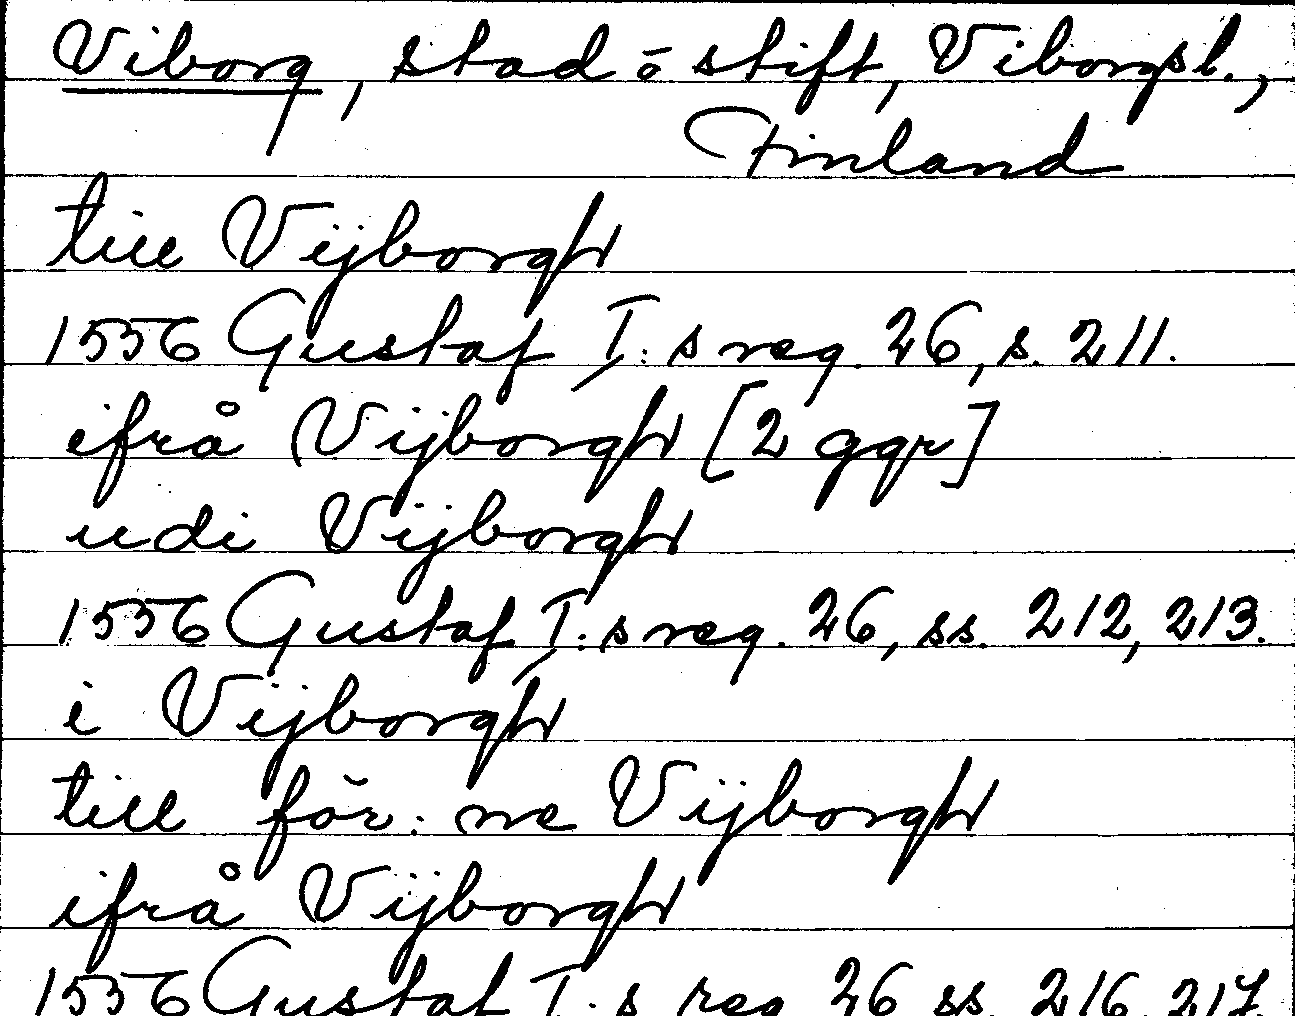 Viborg, stad o stift, Viborgsl.,
Finland
till Vijborgh
1556 Gustaf I:s reg. 26, s. 211.
ifrå Vijborgh [2 ggr]
udi Vijborgh
1556 Gustaf I:s reg. 26, ss. 212, 213.
i Vijborgh
till för:ne Vijborgh
ifrå Vijborgh
1556 Gustaf I:s reg. 26 ss. 216, 217.